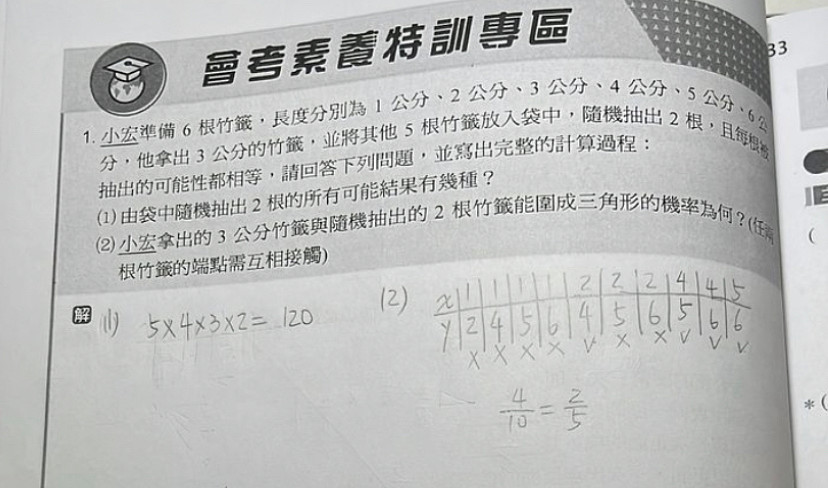 會考素養特訓專區
33
1. 小宏準備 6 根竹籤，長度分別為 1 公分、2 公分、3 公分、4 公分、5 公分、6 公
分，他拿出 3 公分的竹籤，並將其他 5 根竹籤放入袋中，隨機抽出 2 根，且每根被
抽出的可能性都相等，請回答下列問題，並寫出完整的計算過程：
⑴ 由袋中隨機抽出 2 根的所有可能結果有幾種？
⑵ 小宏拿出的 3 公分竹籤與隨機抽出的 2 根竹籤能圍成三角形的機率為何？(任兩
根竹籤的端點需互相接觸)
解 (1) 5×4×3×2= 120
(2) x 1 1 1 1 2 2 2 4 4 5
y 2 4 5 6 4 5 6 5 6 6
× × × × ✓ × × ✓ ✓ ✓
4/10 = 2/5
* (